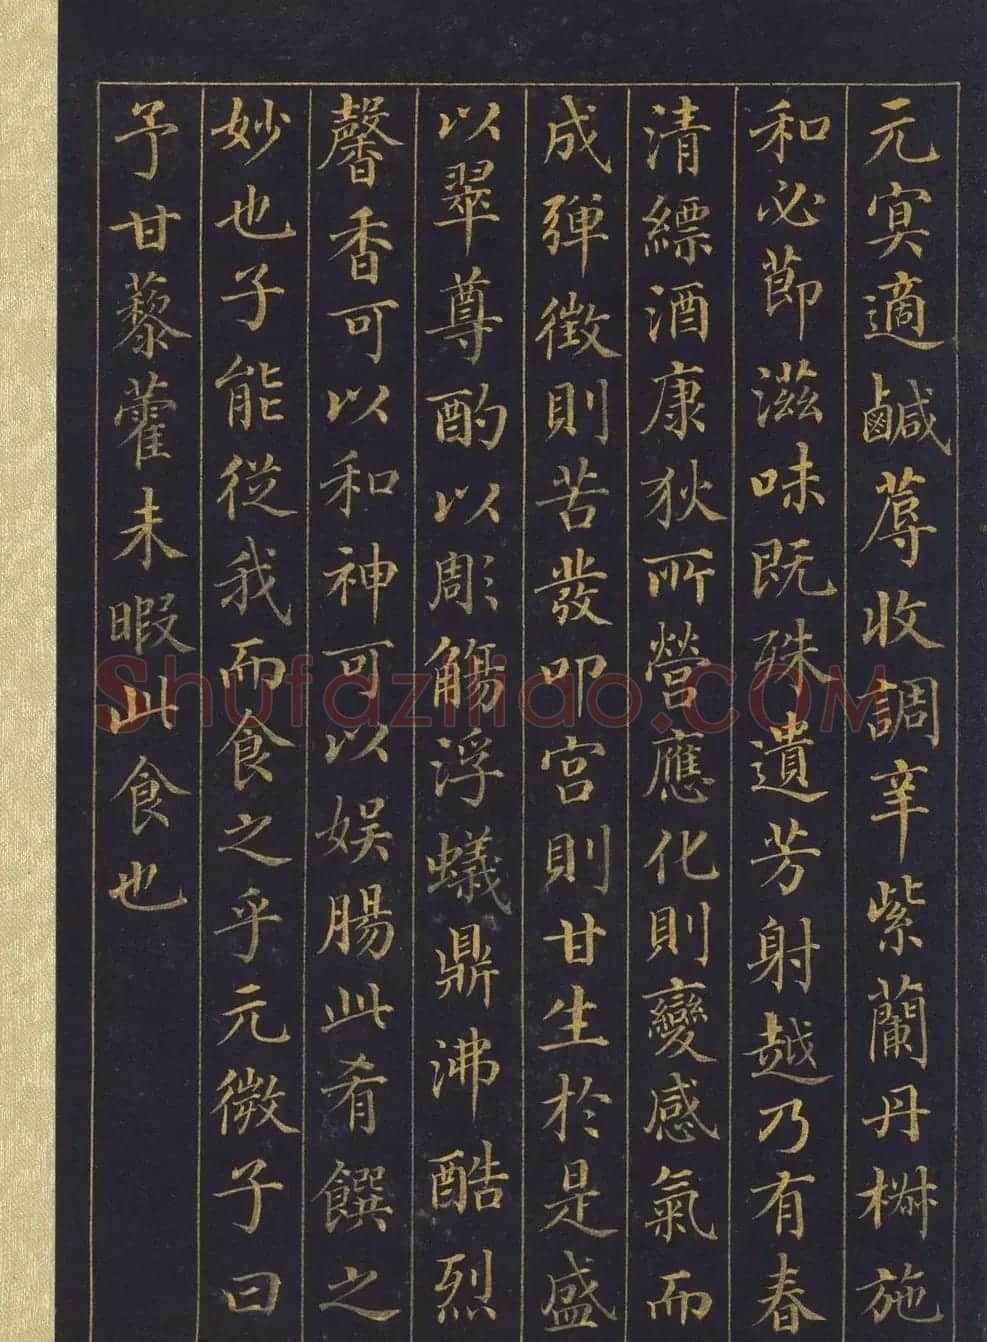 元冥適鹹蓐收調辛紫蘭丹椒施
和必節滋味既殊遺芳射越乃有春
清縹酒康狄所營應化則變感氣而
成弾徵則苦發叩宮則甘生於是盛
以翠尊酌以彫觴浮蟻鼎沸酷烈
馨香可以和神可以娛腸此肴饌之
妙也子能從我而食之乎元微子曰
予甘藜藿未暇此食也
Shufaziliao.COM